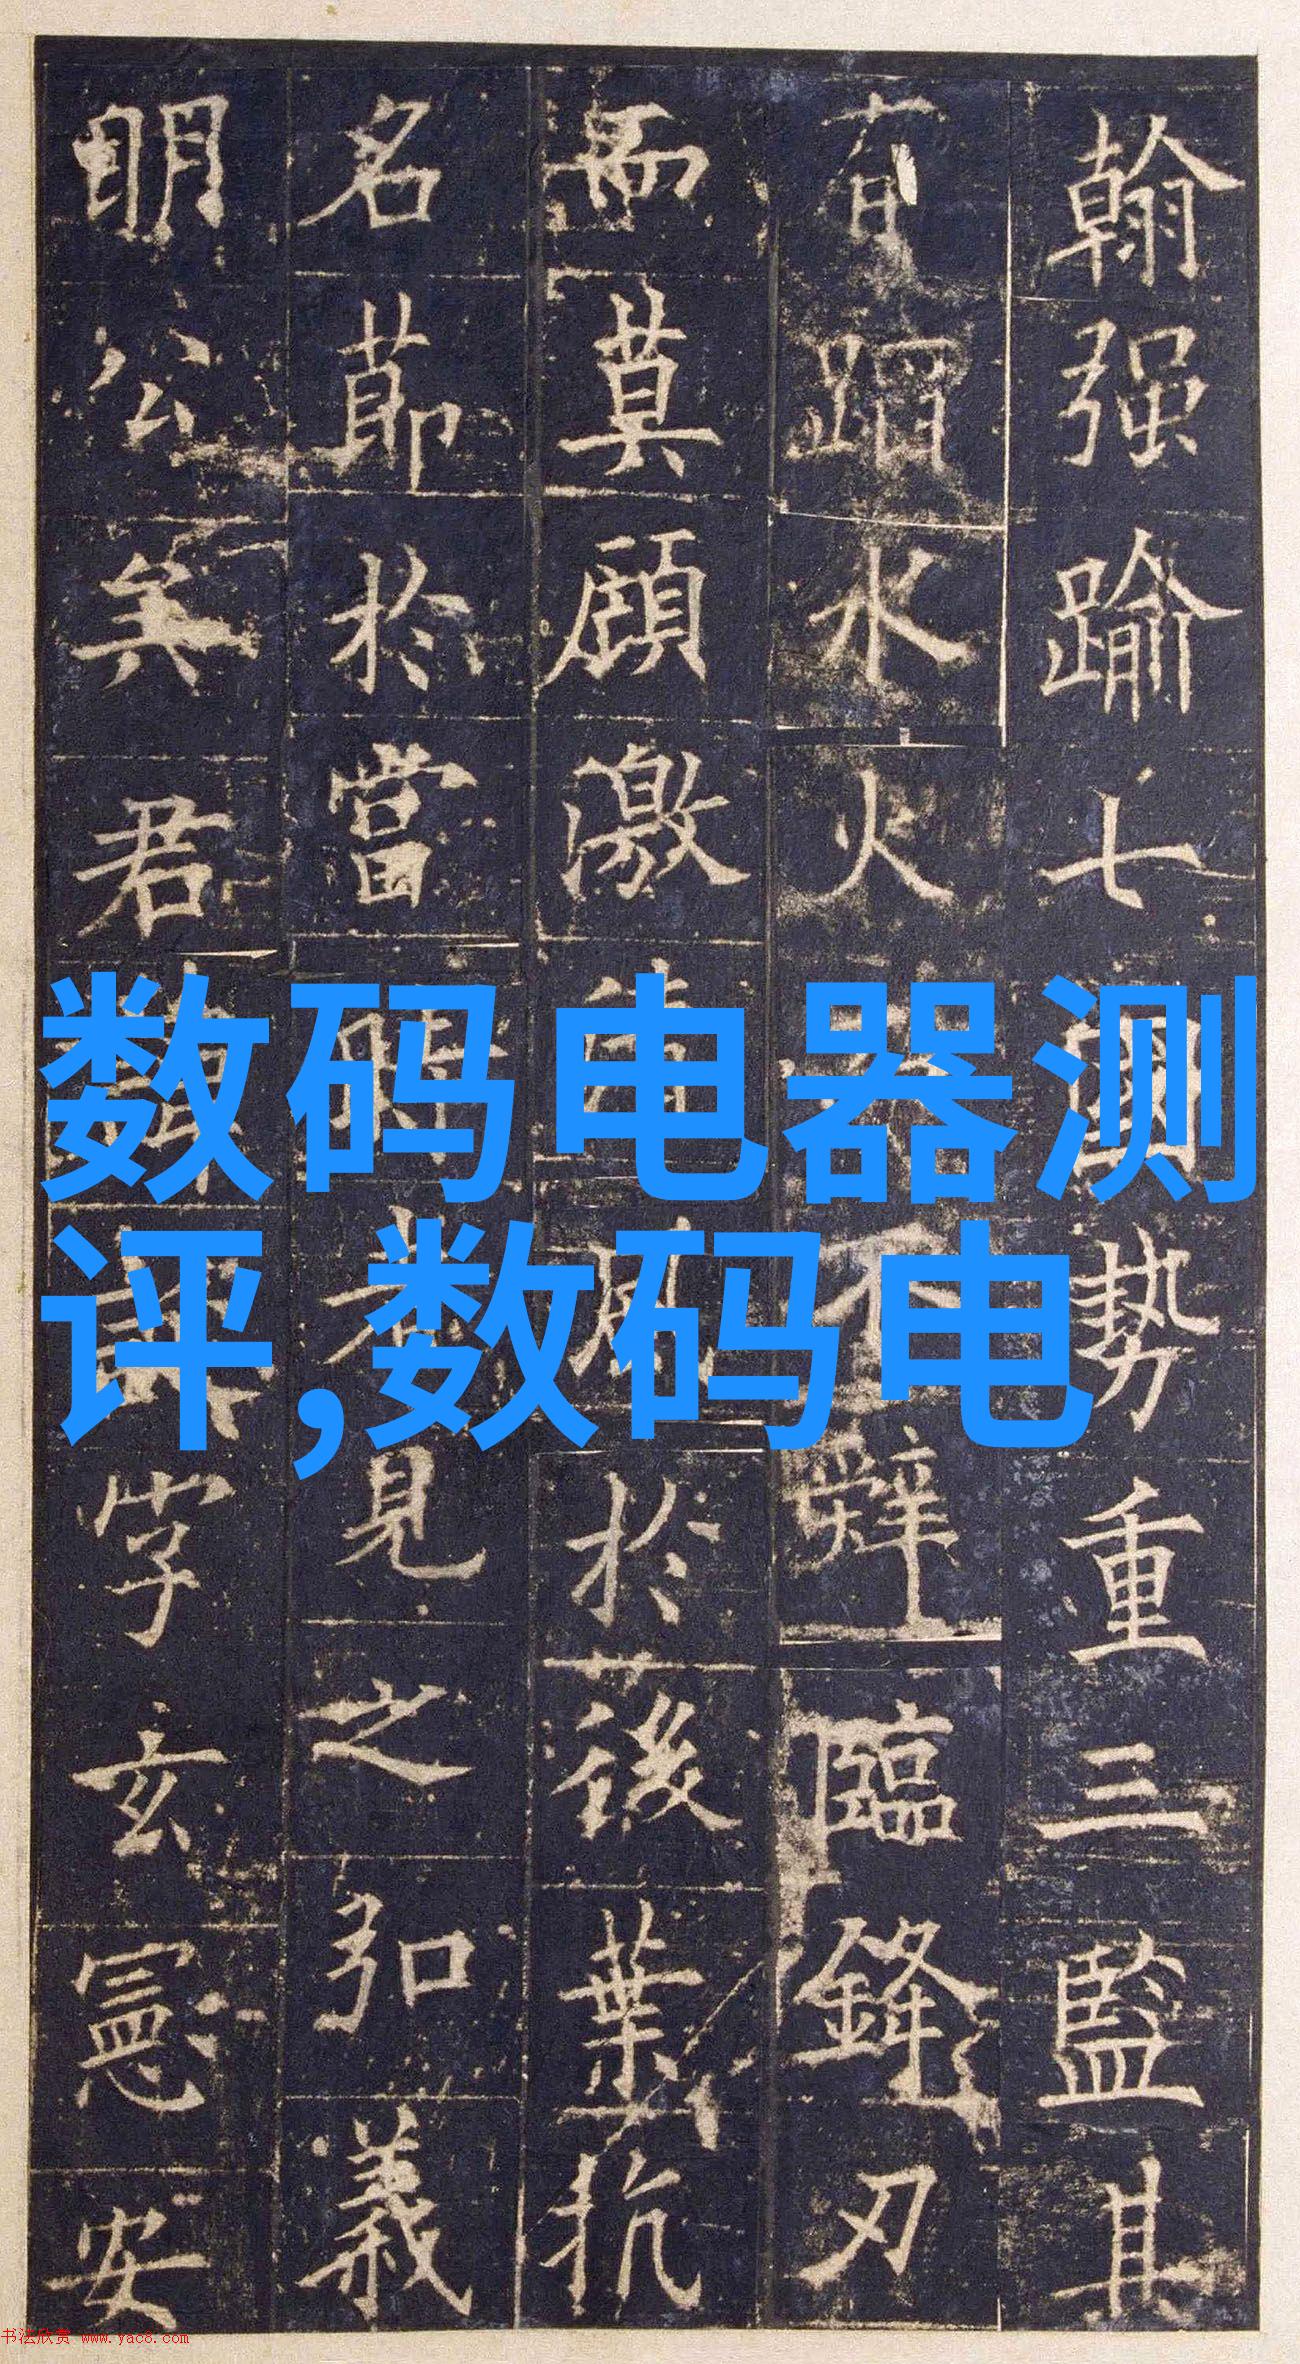 翰强踰七势重三監其
有蹈水火辭臨鋒刃
而莫顧激於後葉抗
名節於當見之弘義
明公矣君字玄憲安
数码电器测
评,数码电
书法欣赏 www.yac8.com